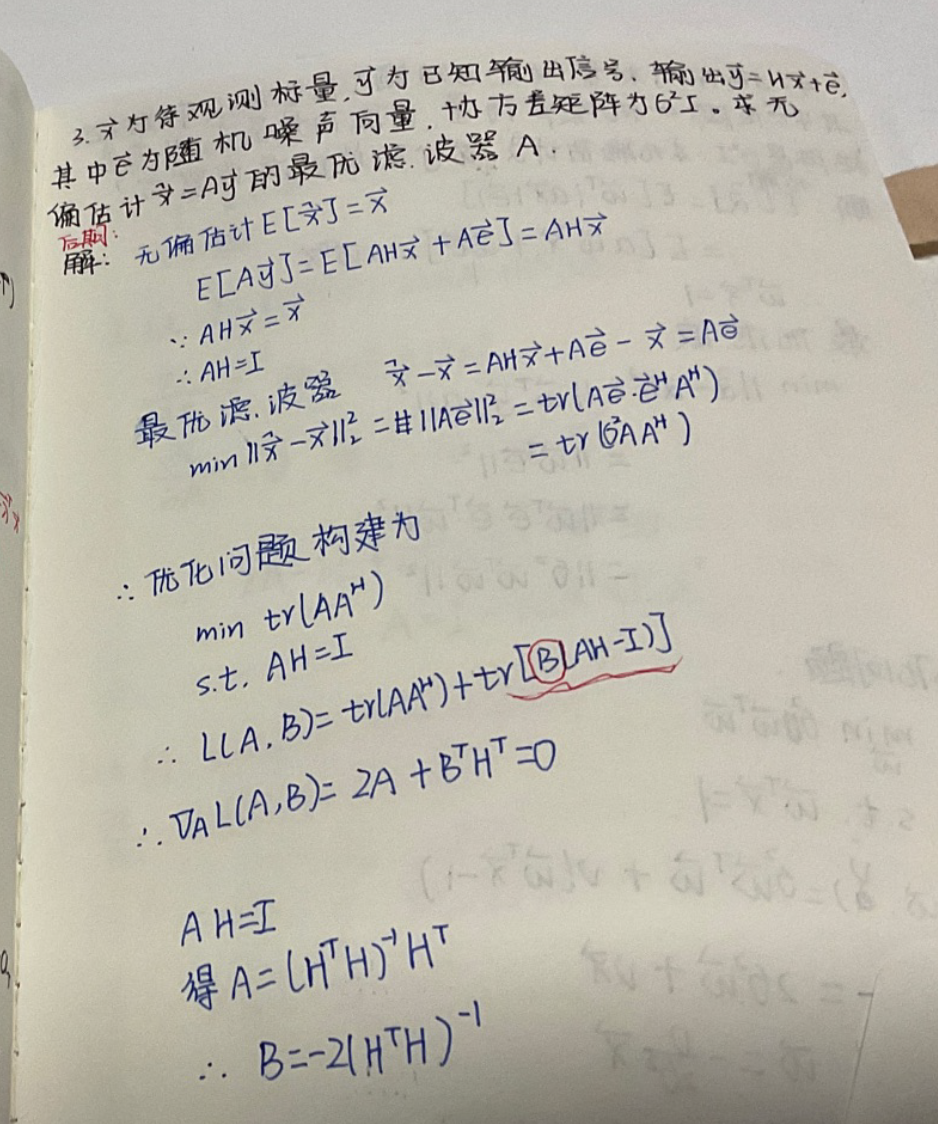 3. x⃗为待观测标量, y⃗为已知输出信号. 输出y⃗=Hx⃗+e⃗,
其中e⃗为随机噪声向量, 协方差矩阵为σ²I。求无
偏估计x̂⃗=Ay⃗的最优滤波器A.
后期:
解: 无偏估计E[x̂⃗]=x⃗
E[Ay⃗]=E[AHx⃗+Ae⃗]=AHx⃗
∵ AHx⃗=x⃗
∴ AH=I
最优滤波器 x̂⃗-x⃗=AHx⃗+Ae⃗-x⃗=Ae⃗
min||x̂⃗-x⃗||₂²=||Ae⃗||₂²=tr(Ae⃗·e⃗ᴴAᴴ)
=tr(σ²AAᴴ)
∴ 优化问题构建为
min tr(AAᴴ)
s.t. AH=I
∴ L(A,B)=tr(AAᴴ)+tr[B(AH-I)]
∴ ∇_A L(A,B)=2A+BᵀHᵀ=0
AH=I
得A=(HᵀH)⁻¹Hᵀ
∴ B=-2(HᵀH)⁻¹